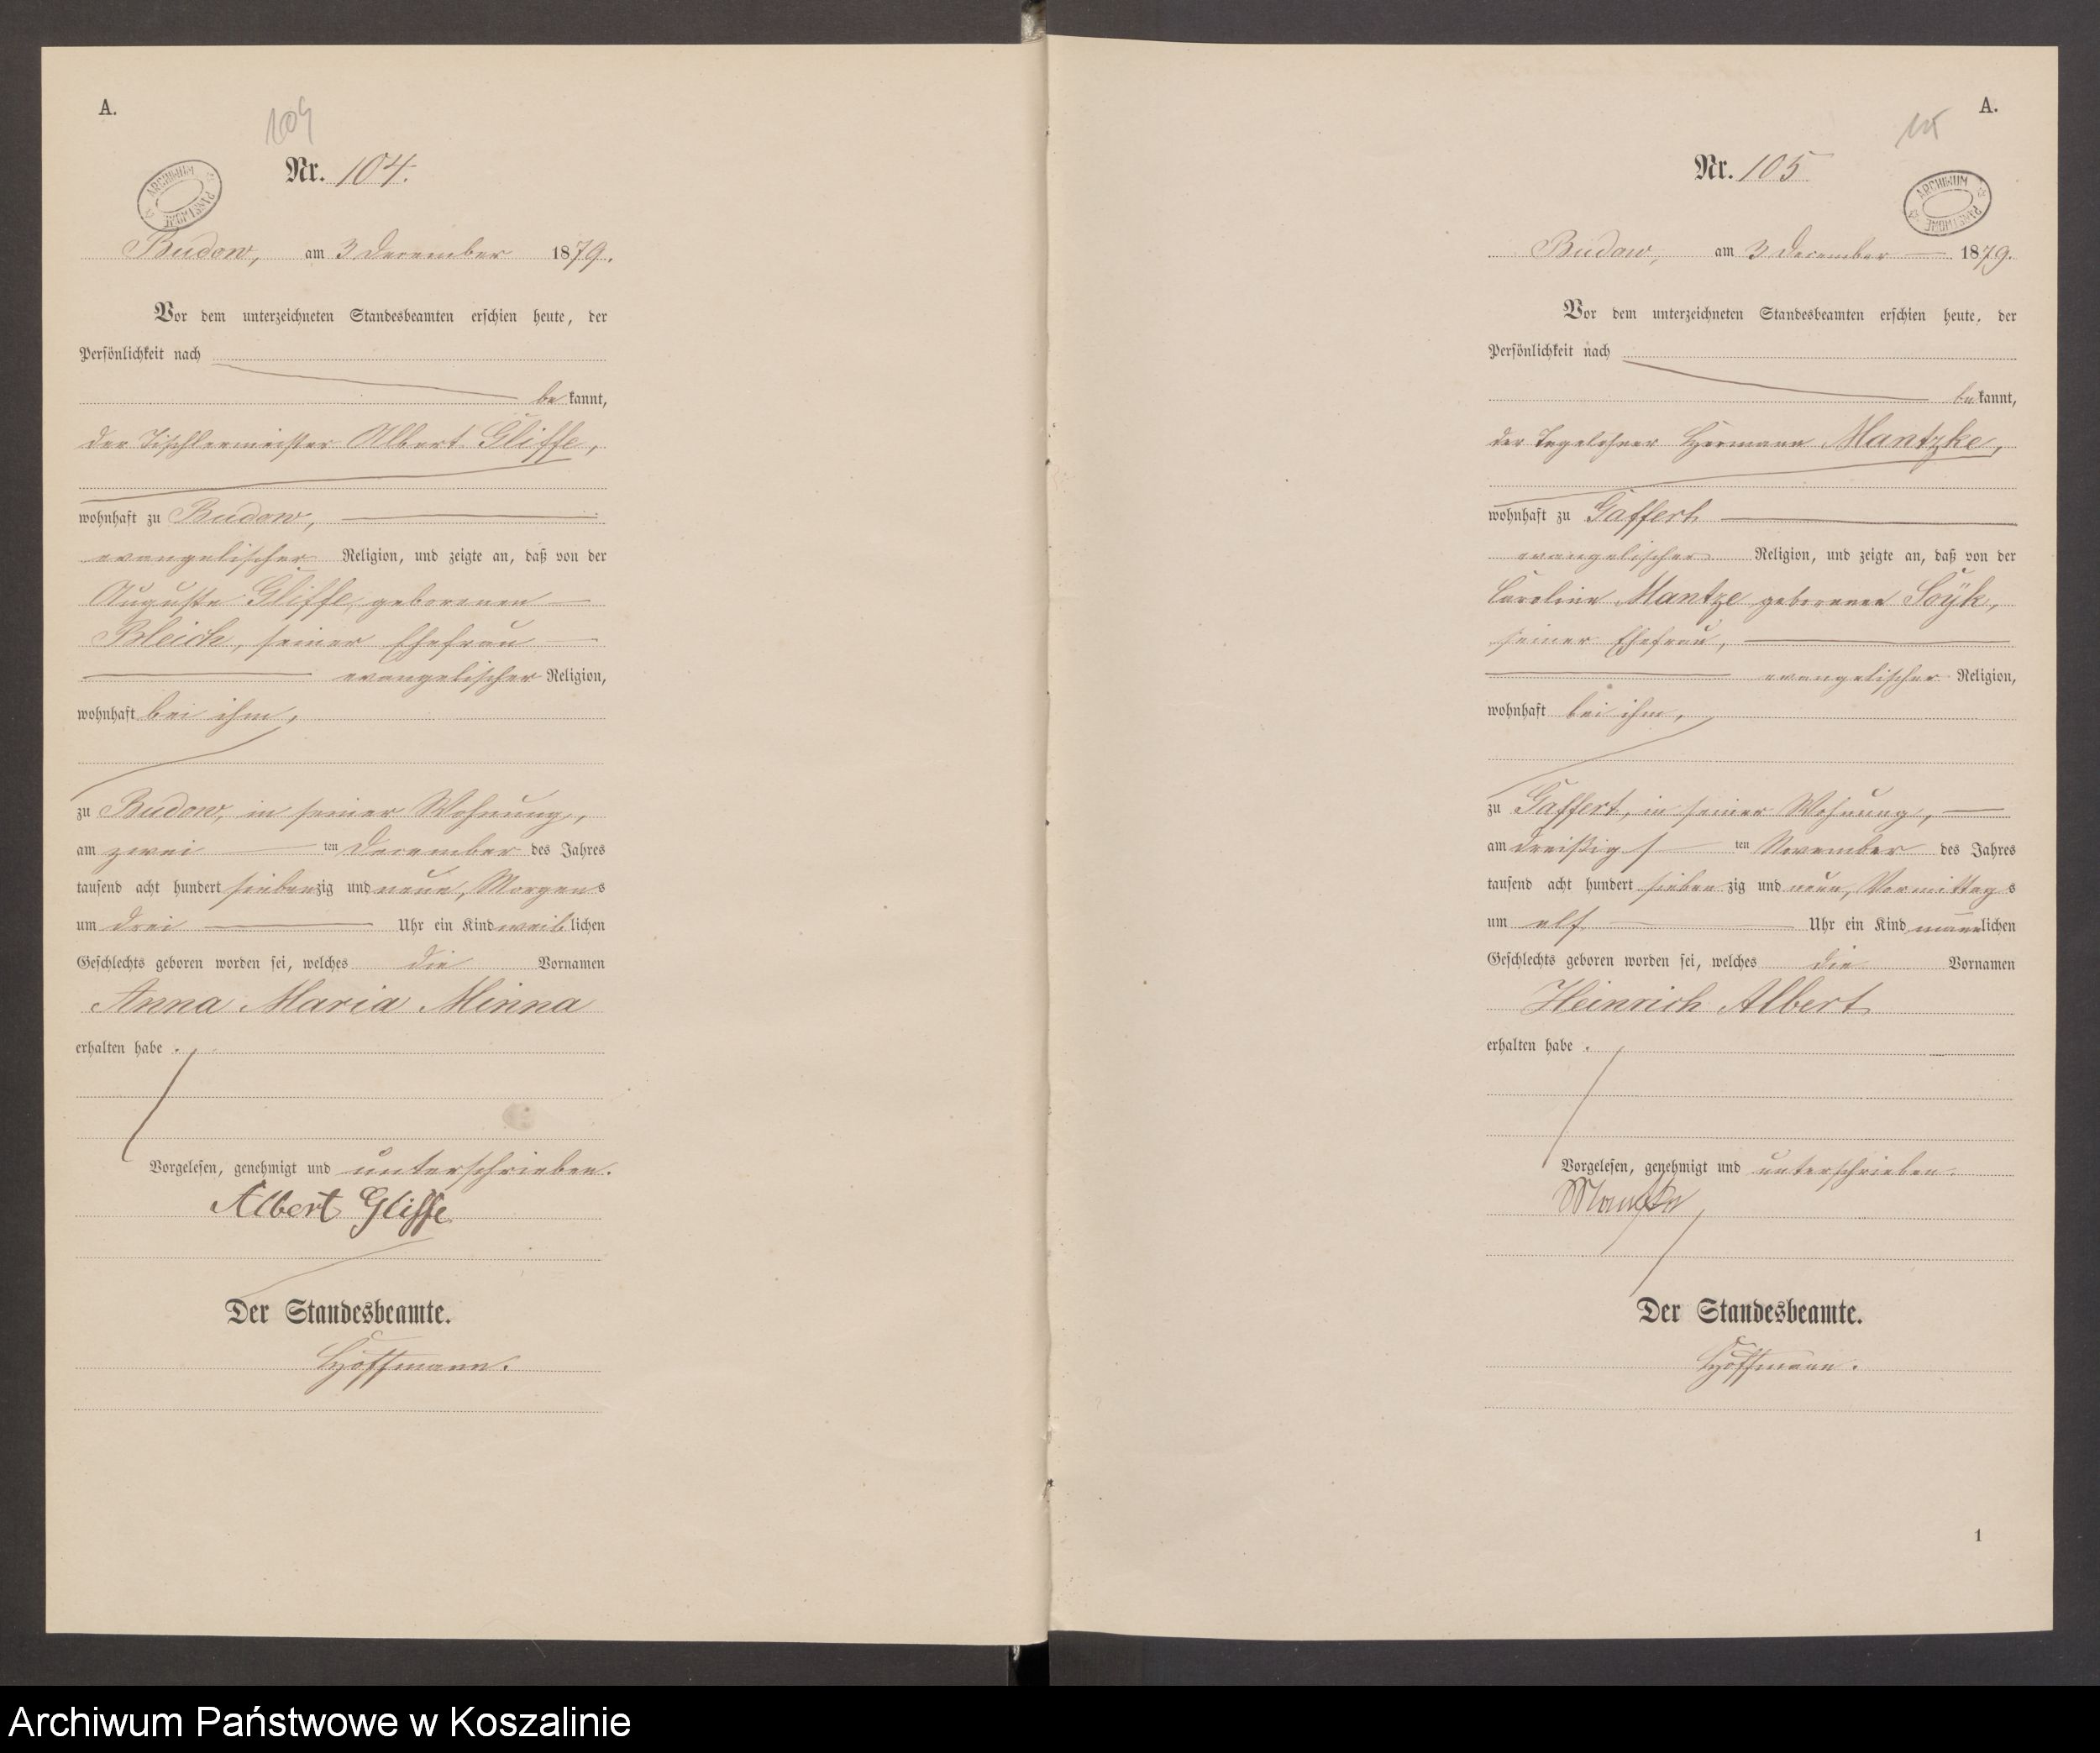 A.
104
Nr. 104.
ARCHIWUM PAŃSTWOWE
Budow, am 3 December 1879.
Vor dem unterzeichneten Standesbeamten erschien heute, der
Persönlichkeit nach
bekannt,
der Tischlermeister Albert Gliffe,
wohnhaft zu Budow,
evangelischer Religion, und zeigte an, daß von der
Auguste Gliffe, geborenen
Bleich, seiner Ehefrau
evangelischer Religion,
wohnhaft bei ihm,
zu Budow, in seiner Wohnung,
am zwei ten December des Jahres
tausend acht hundert siebenzig und neun, Morgens
um drei Uhr ein Kind weiblichen
Geschlechts geboren worden sei, welches die Vornamen
Anna Maria Minna
erhalten habe.
Vorgelesen, genehmigt und unterschrieben.
Albert Gliffe
Der Standesbeamte.
Hoffmann.
A.
105
Nr. 105
ARCHIWUM PAŃSTWOWE
Budow, am 3 December 1879.
Vor dem unterzeichneten Standesbeamten erschien heute, der
Persönlichkeit nach
bekannt,
der Tagelöhner Hermann Mantzke,
wohnhaft zu Gaffert
evangelischer Religion, und zeigte an, daß von der
Caroline Mantze geborenen Soÿk,
seiner Ehefrau,
evangelischer Religion,
wohnhaft bei ihm,
zu Gaffert, in seiner Wohnung,
am dreißigs ten November des Jahres
tausend acht hundert siebenzig und neun, Vormittags
um elf Uhr ein Kind männlichen
Geschlechts geboren worden sei, welches die Vornamen
Heinrich Albert
erhalten habe.
Vorgelesen, genehmigt und unterschrieben.
Der Standesbeamte.
Hoffmann.
1
Archiwum Państwowe w Koszalinie